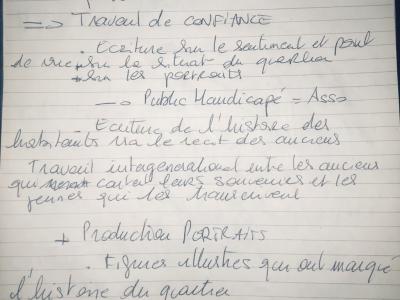 => Travail de CONFIANCE
. Ecriture sur le sentiment et point
de vue sur la situat° du quartier
+ sur les portraits
-> Public Handicapé = Asso
- Ecriture de l'histoire des
habitants via le récit des anciens
Travail intergénérationnel entre les anciens
qui content leurs souvenirs et les
jeunes qui les transcrivent
+ Production PORTRAITS
. Figures illustres qui ont marqué
l'histoire du quartier